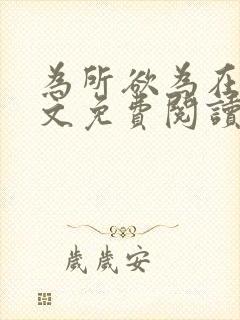 為所欲為在
文免費閱讀
歲歲安